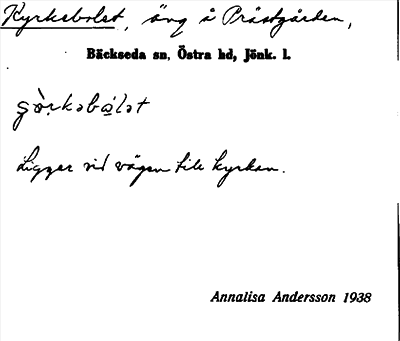 Kyrksbolet, äng å Prästgården,
Bäckseda sn, Östra hd, Jönk. l.
Ligger vid vägen till kyrkan.
Annalisa Andersson 1938